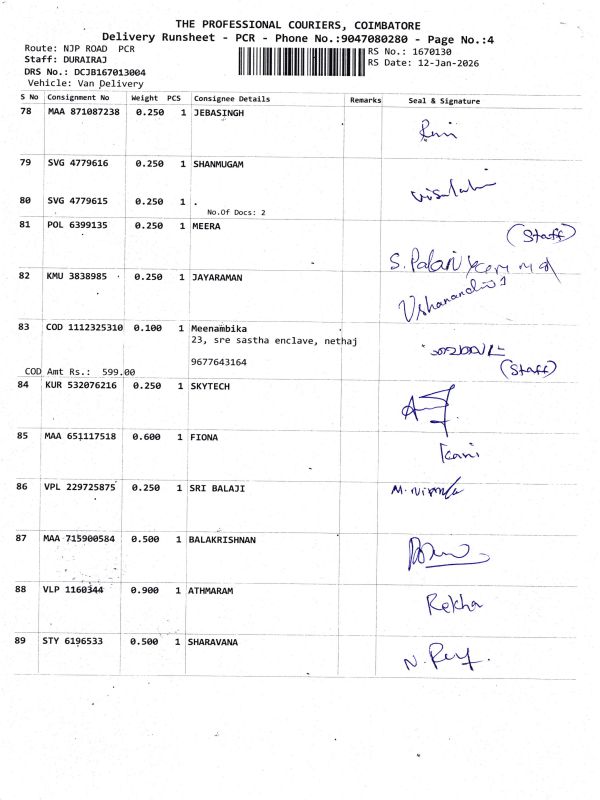 THE PROFESSIONAL COURIERS, COIMBATORE
Delivery Runsheet - PCR - Phone No.:9047080280 - Page No.:4
Route: NJP ROAD PCR
RS No.: 1670130
Staff: DURAIRAJ
RS Date: 12-Jan-2026
DRS No.: DCJB167013004
Vehicle: Van Delivery
S No Consignment No Weight PCS Consignee Details Remarks Seal & Signature
78 MAA 871087238 0.250 1 JEBASINGH
79 SVG 4779616 0.250 1 SHANMUGAM
80 SVG 4779615 0.250 1 .
No.Of Docs: 2
81 POL 6399135 0.250 1 MEERA (Staff)
82 KMU 3838985 0.250 1 JAYARAMAN
83 COD 1112325310 0.100 1 Meenambika
23, sre sastha enclave, nethaj
9677643164
COD Amt Rs.: 599.00 (Staff)
84 KUR 532076216 0.250 1 SKYTECH
85 MAA 651117518 0.600 1 FIONA Kani
86 VPL 229725875 0.250 1 SRI BALAJI M. Nirmla
87 MAA 715900584 0.500 1 BALAKRISHNAN
88 VLP 1160344 0.900 1 ATHMARAM Rekha
89 STY 6196533 0.500 1 SHARAVANA